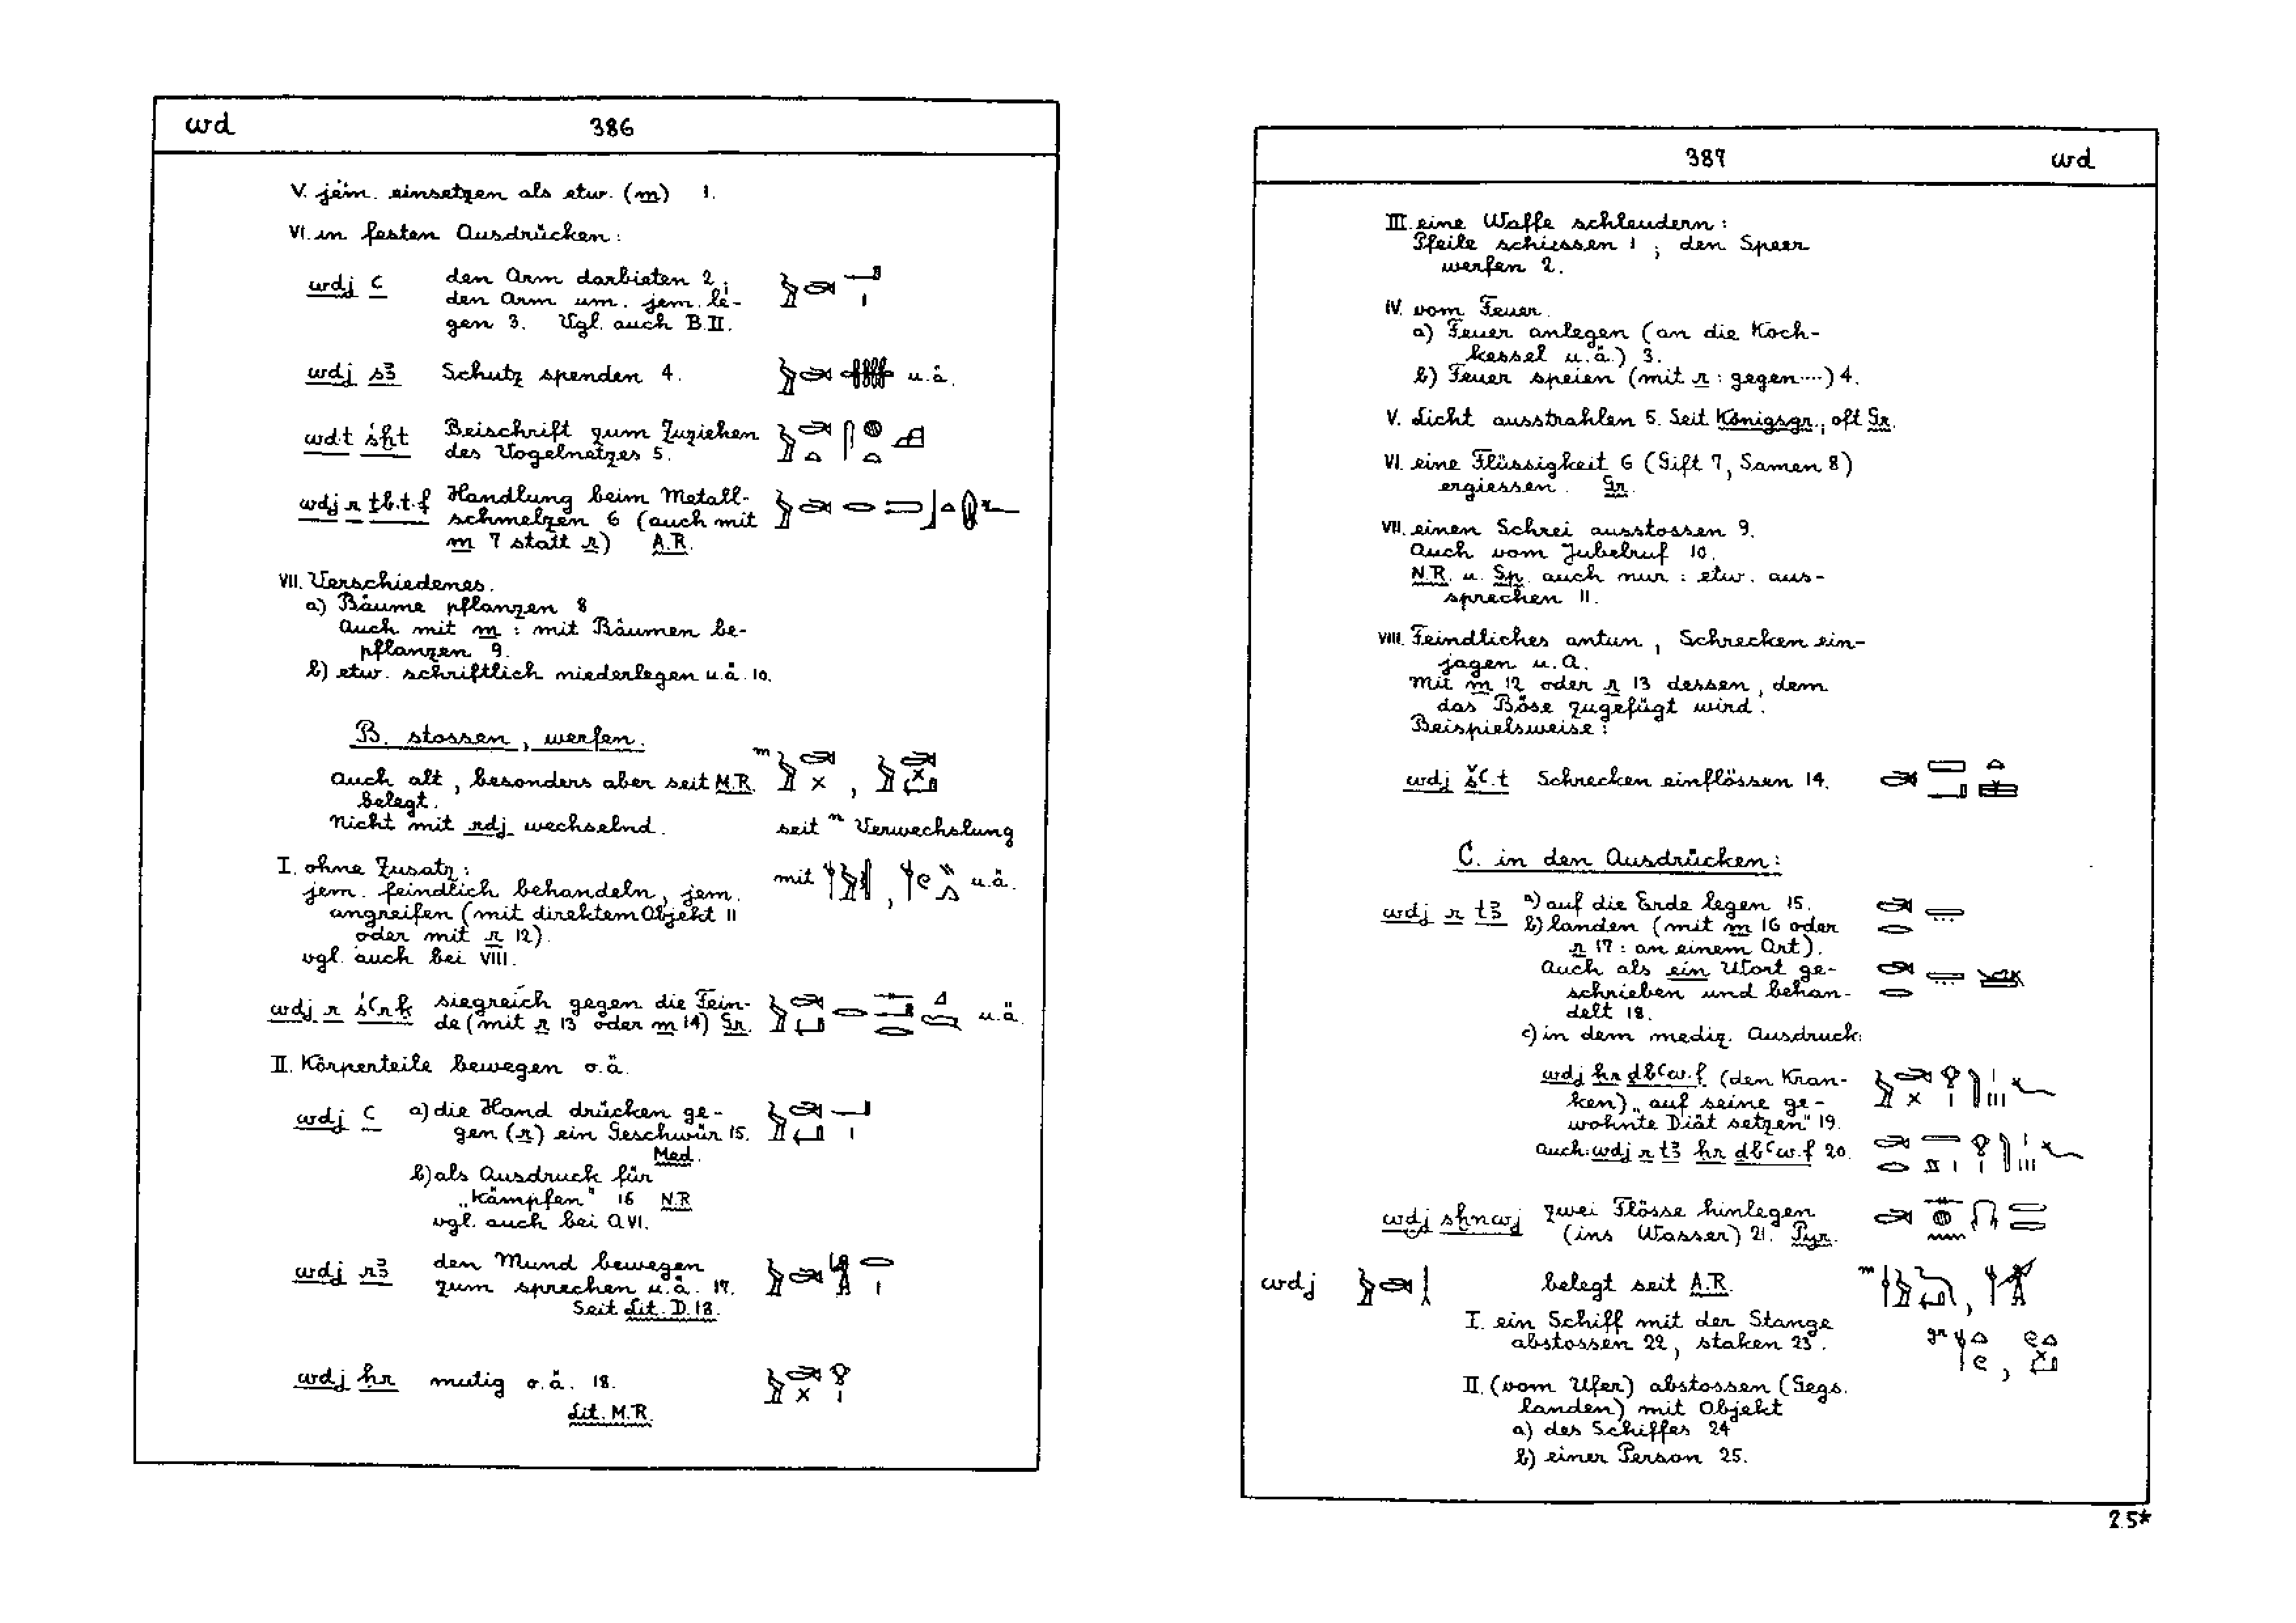 wd
386
V. jem. einsetzen als etw. (m) 1.
VI. in festen Ausdrücken:
wdj ꜥ den Arm darbieten 2;
den Arm um jem. le-
gen 3. Vgl. auch B.II.
wdj s3 Schutz spenden 4. u.ä.
wdt śḫt Beischrift zum Zuziehen
des Vogelnetzes 5.
wdj r ṯb.t.f Handlung beim Metall-
schmelzen 6 (auch mit
m 7 statt r) A.R.
VII. Verschiedenes.
a) Bäume pflanzen 8
Auch mit m: mit Bäumen be-
pflanzen 9.
b) etw. schriftlich niederlegen u.ä. 10.
B. stossen, werfen.
Auch alt, besonders aber seit M.R.
belegt.
Nicht mit rdj wechselnd. seit n Verwechslung
mit u.ä.
I. ohne Zusatz:
jem. feindlich behandeln, jem.
angreifen (mit direktem Objekt 11
oder mit r 12).
vgl. auch bei VIII.
wdj r śꜥrḳ siegreich gegen die Fein-
de (mit r 13 oder m 14) Gr. u.ä.
II. Körperteile bewegen o.ä.
wdj ꜥ a) die Hand drücken ge-
gen (r) ein Geschwür 15.
Med.
b) als Ausdruck für
„Kämpfen" 16 N.R
vgl. auch bei A VI.
wdj r3 den Mund bewegen
zum sprechen u.ä. 17.
Seit Lit. D. 18.
wdj ḥr mutig o.ä. 18.
Lit. M.R.
387
wd
III. eine Waffe schleudern:
Pfeile schiessen 1; den Speer
werfen 2.
IV. vom Feuer.
a) Feuer anlegen (an die Koch-
kessel u.ä.) 3.
b) Feuer speien (mit r: gegen....) 4.
V. Licht ausstrahlen 5. Seit Königsgr., oft Gr.
VI. eine Flüssigkeit 6 (Gift 7, Samen 8)
ergiessen. Gr.
VII. einen Schrei ausstossen 9.
Auch vom Jubelruf 10.
N.R. u. Sp. auch nur: etw. aus-
sprechen 11.
VIII. Feindliches antun, Schrecken ein-
jagen u.A.
Mit m 12 oder r 13 dessen, dem
das Böse zugefügt wird.
Beispielsweise:
wdj šꜥ.t Schrecken einflössen 14.
C. in den Ausdrücken:
wdj r t3 a) auf die Erde legen 15.
b) landen (mit m 16 oder
r 17: an einem Ort).
Auch als ein Wort ge-
schrieben und behan-
delt 18.
c) in dem mediz. Ausdruck:
wdj ḥr dbꜥw.f (den Kran-
ken) „auf seine ge-
wohnte Diät setzen" 19.
Auch: wdj r t3 ḥr dbꜥw.f 20.
wdj sḫnwj zwei Flösse hinlegen
(ins Wasser) 21. Pyr.
wdj belegt seit A.R. m
I. ein Schiff mit der Stange
abstossen 22, staken 23. gr
II. (vom Ufer) abstossen (Gegs.
landen) mit Objekt
a) des Schiffes 24
b) einer Person 25.
25*